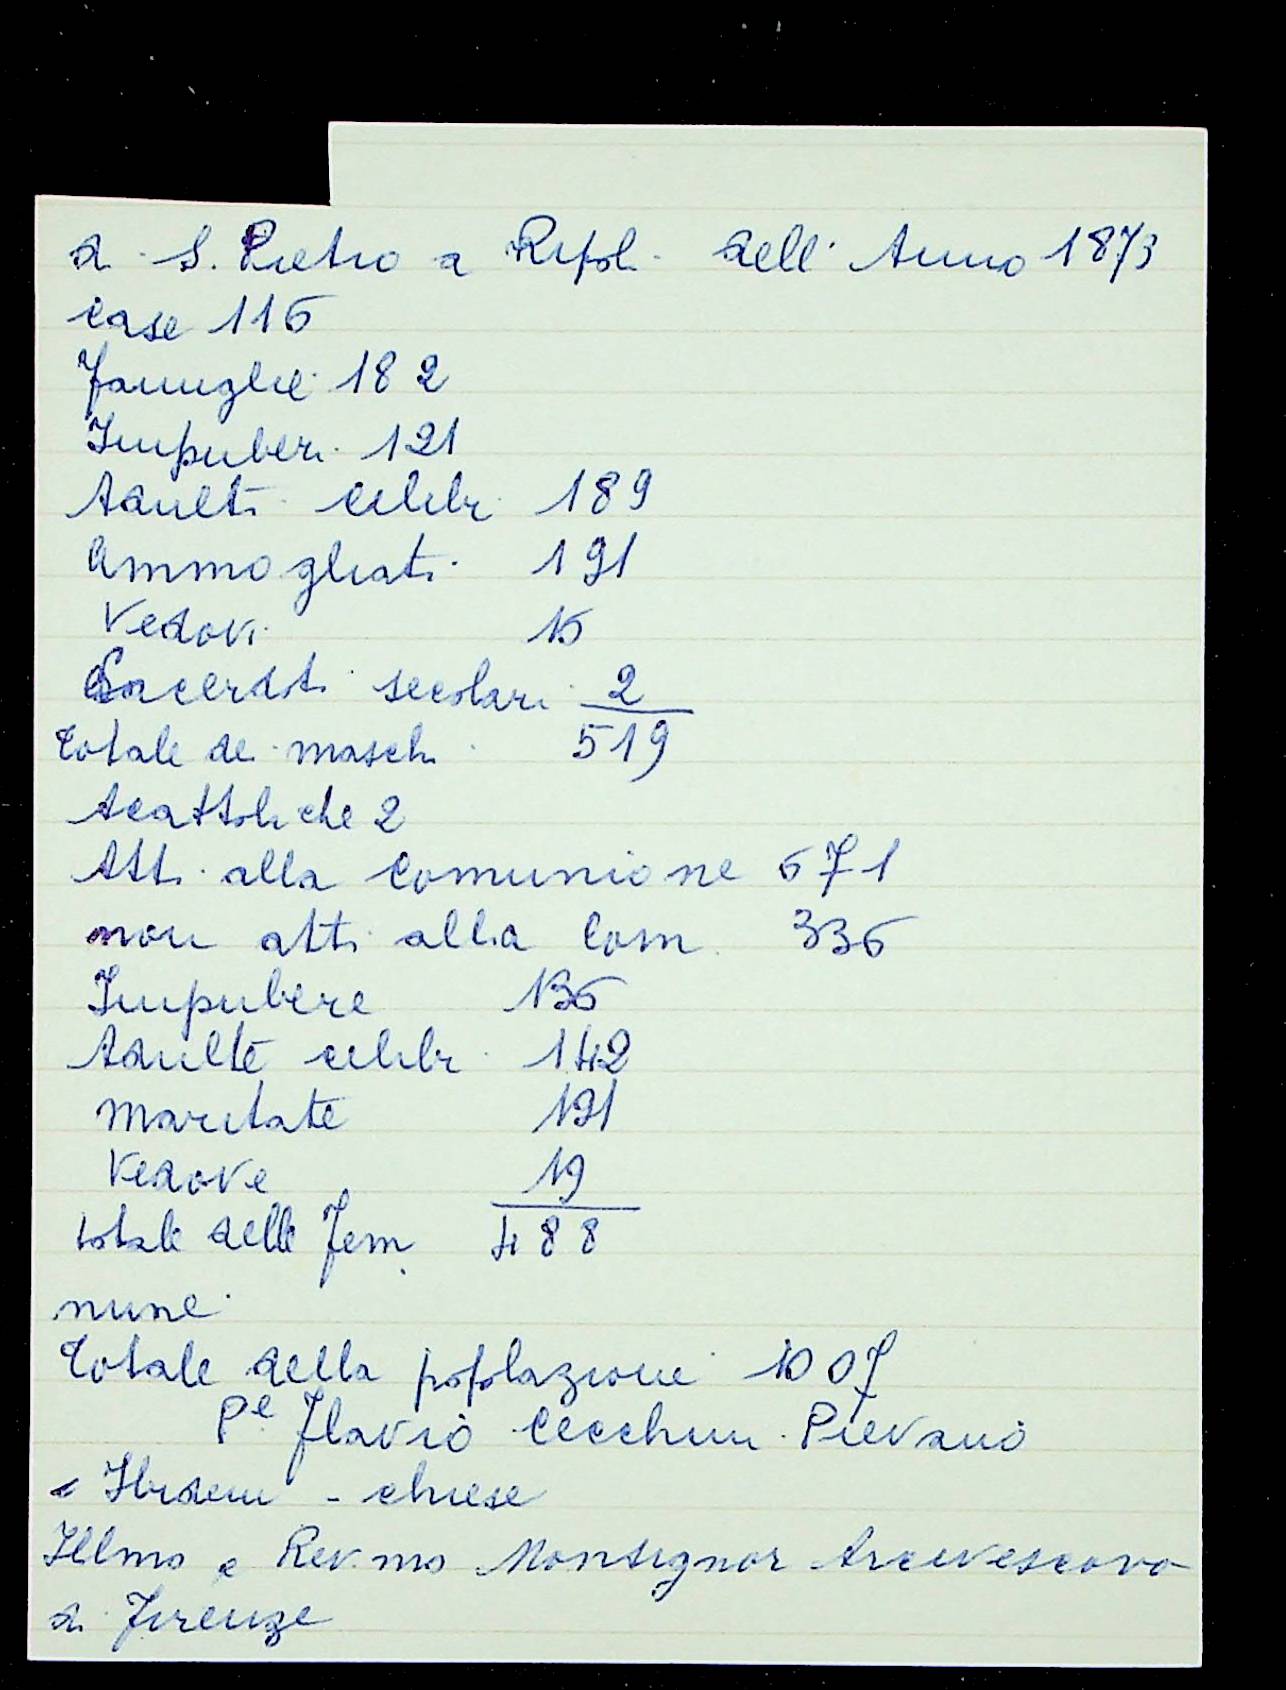 di S. Pietro a Ripoli dell'Anno 1873
case 116
famiglie 182
Impuberi 121
Adulti celibi 189
Ammogliati 191
Vedovi 16
Sacerdoti secolari 2
519
Totale dei maschi
Acattoliche 2
Atti alla comunione 671
non atti alla Com. 336
Impubere 136
Adulte celibi 142
maritate 191
Vedove 19
totale delle Fem 488
mine
Totale della popolazione 1007
Pe Flavio Cecchini Pievano
Ibidem - chiese
Illmo e Rev.mo Monsignor Arcivescovo
di Firenze